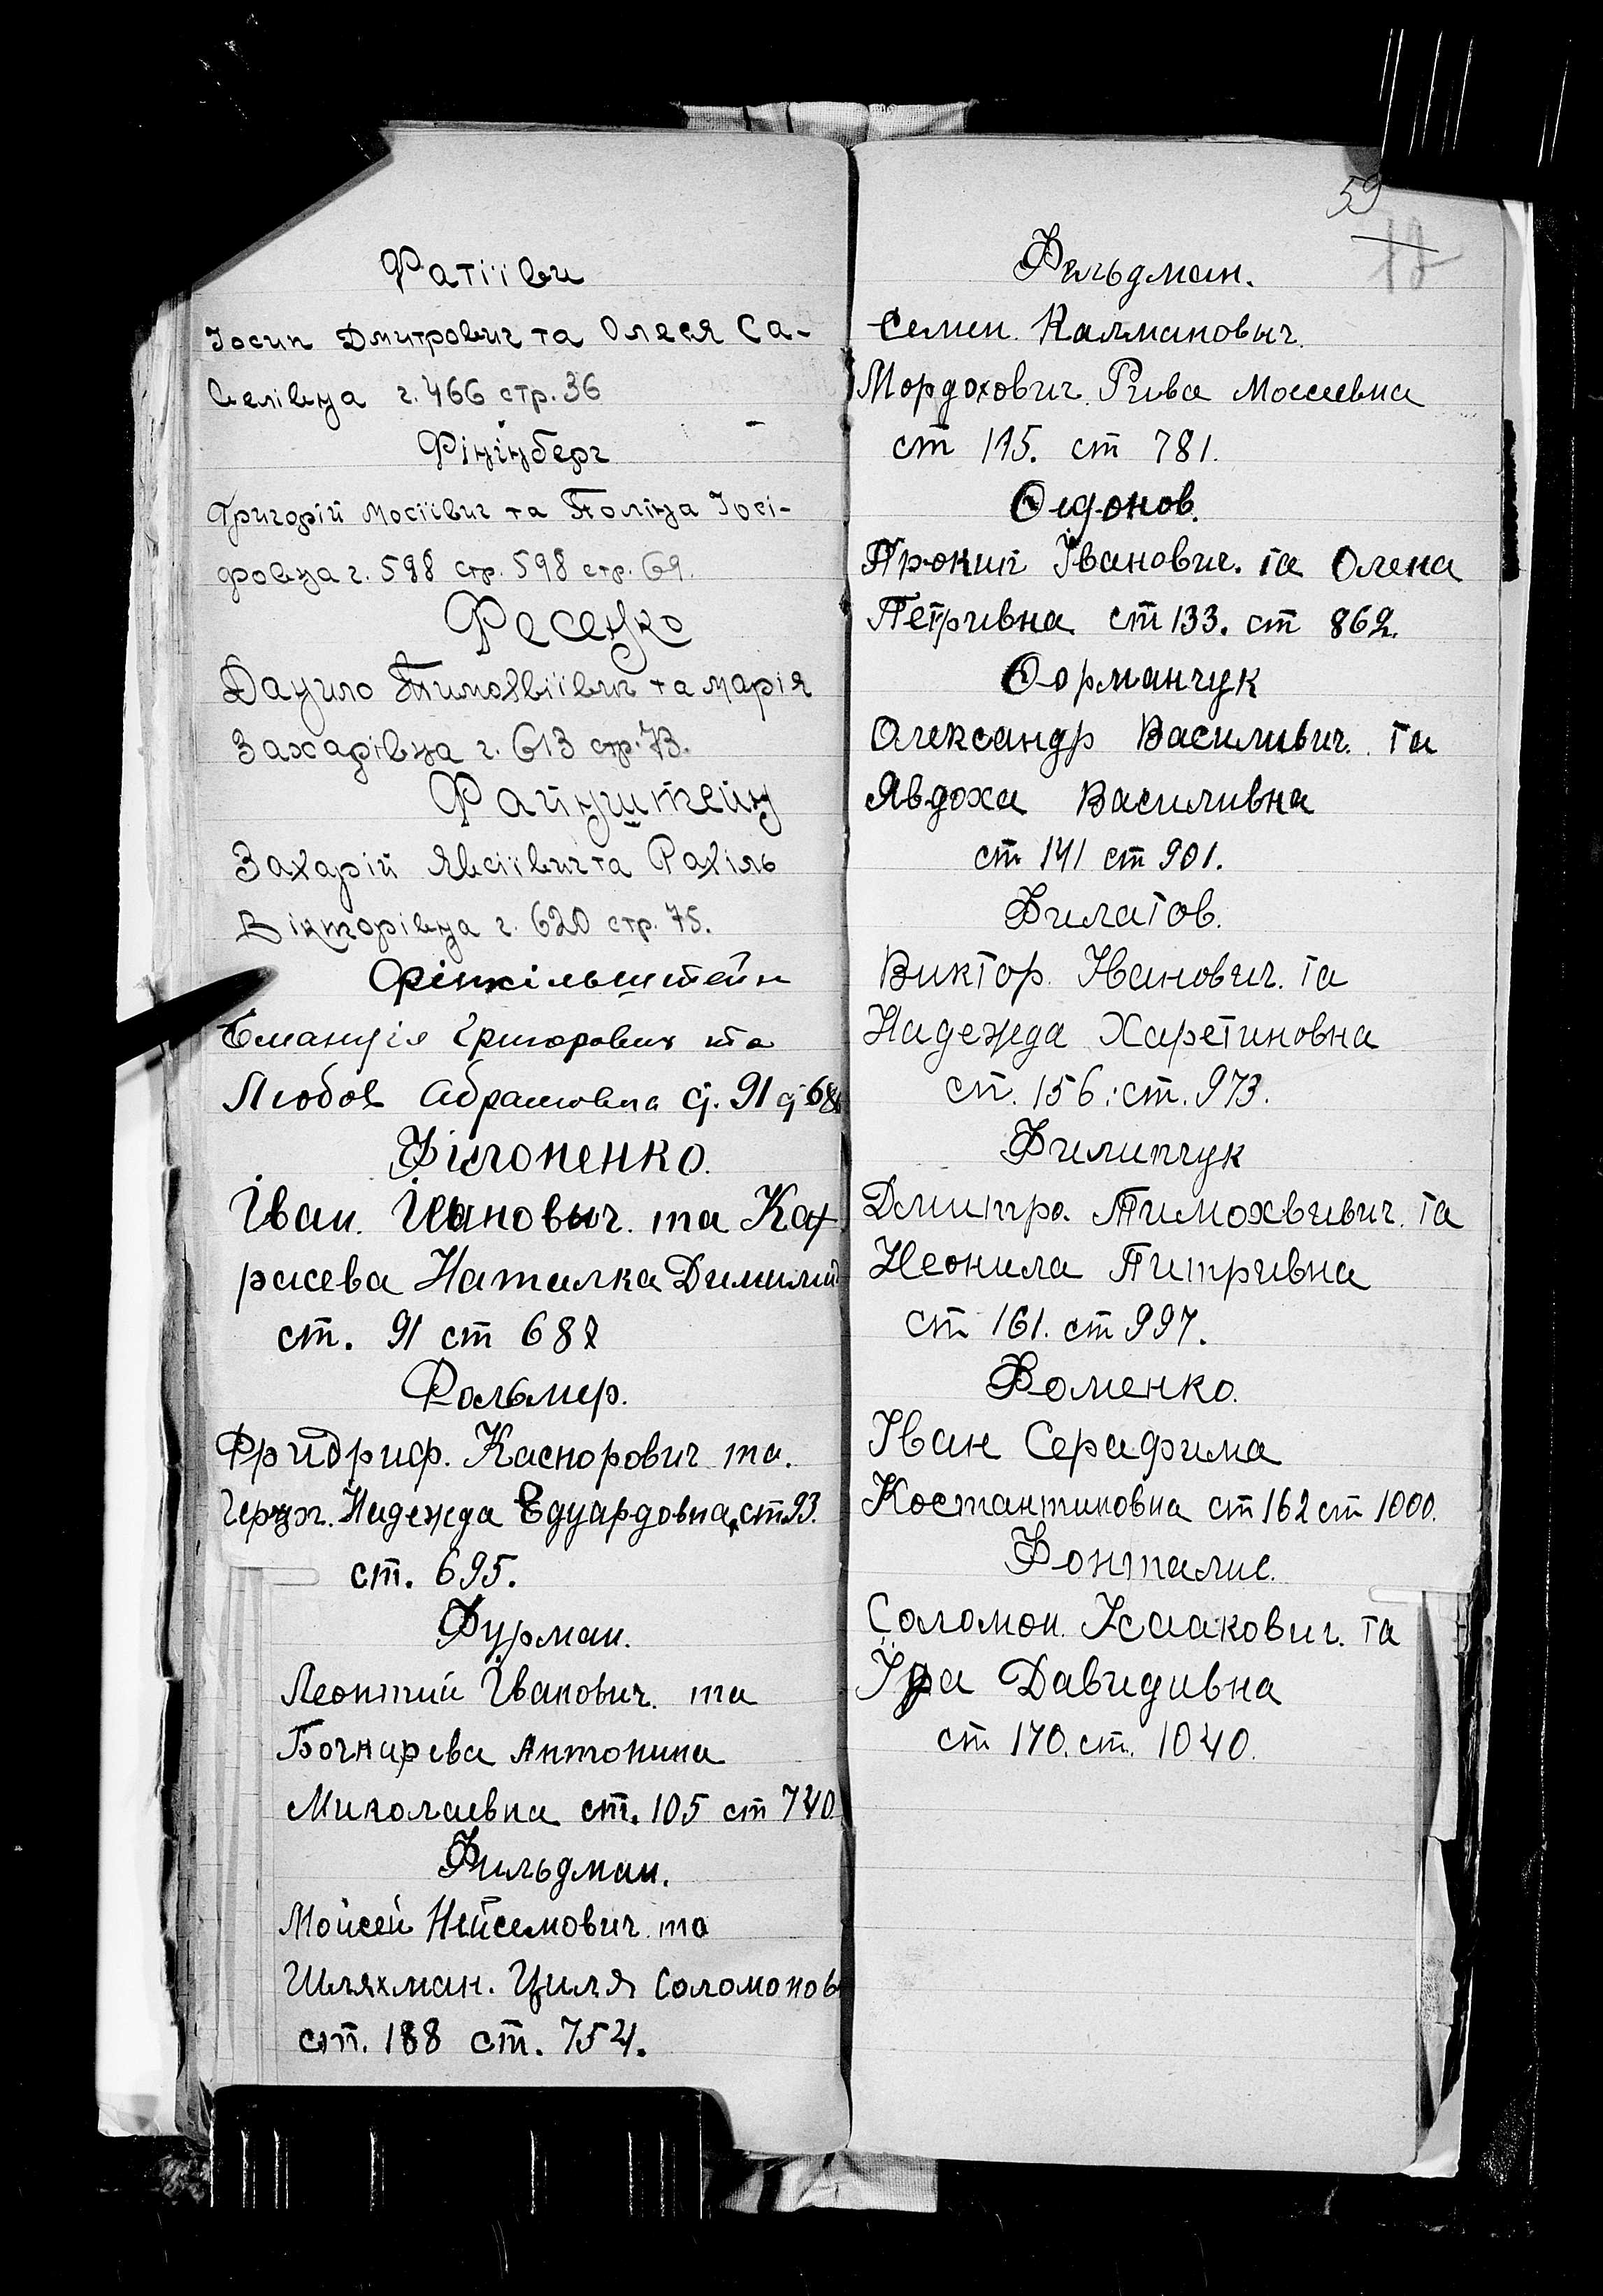 Фатіїви
Іосип Дмитрович та Олеся Са-
велівна г. 466 стр. 36
Фінінберг
Григорій Мосіївич та Поліна Іосі-
фовна г. 598 стр. 598 стр. 69.
Фесенко
Данило Тимохвіївич та Марія
Захарівна г. 613 стр. 73.
Файнштейн
Захарій Явсіївич та Рахіль
Вікторівна г. 620 стр. 75.
Фінкільштейн
Емануїл Григорович та
Любов Абрамовна ст. 91 ст 686
Філоненко.
Іван. Іванович. та
Наталка
ст. 91 ст 687
Фольмер.
Фридриф. Каспорович та.
Надежда Едуардовна, ст 93.
ст. 695.
Фурман.
Леонтий Іванович. та
Бочнарева Антонина
Миколаевна ст. 105 ст 740
Фильдман.
Мойсей Нейсемович та
Шляхман. Циля Соломонов
ст. 188 ст. 754.
59
18
Фельдман.
Семен. Калманович.
Мордохович Рива Моисеевна
ст 115. ст 781.
Федонов.
Прокип Іванович. та Олена
Петривна ст 133. ст 862.
Форманчук
Олександр Василивич. та
Явдоха Василивна
ст 141 ст 901.
Филатов.
Виктор. Іванович. та
Надежда Харетиновна
ст. 156: ст. 973.
Филипчук
Дмитро. Тимохвивич. та
Неонила Питривна
ст 161. ст 997.
Фоменко.
Іван Серафима
Костантиновна ст 162 ст 1000.
Фонталис.
Соломон. Ісаакович. та
Іра Давидивна
ст 170. ст. 1040.